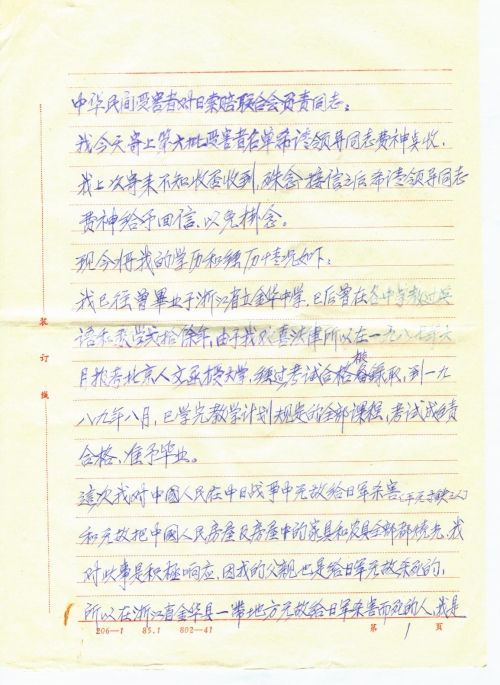 中华民间受害者对日索赔联合会负责同志：
我今天寄上第六批受害者名单希请领导同志费神查收，
我上次寄来不知收否收到，殊念 接信之后希请领导同志
费神给予回信，以免掛念。
现今将我的学历和经历情况如下：
我已往曾畢业于浙江省立金华中学，已后曾在各中学教过英
语和 拾馀年，由于我欢喜法律所以在一九八七年六
月报考北京人文函授大学，经过考试合格 被 錄取，到一九
八九年八月，已学完教学计划规定的全部课程，考试成绩
合格，准予毕业。
這次我对中國人民在中日战争中无故给日军杀害
和无故把中國人民房屋及房屋中的家具和农具全部都烧光，我
对此事是积極响应，因我的父親也是给日军无故杀死的，
所以在浙江省金华县一带地方无故给日军杀害而死的人，我是
装
订
线
206—1 85.1 802—41
第 1 页